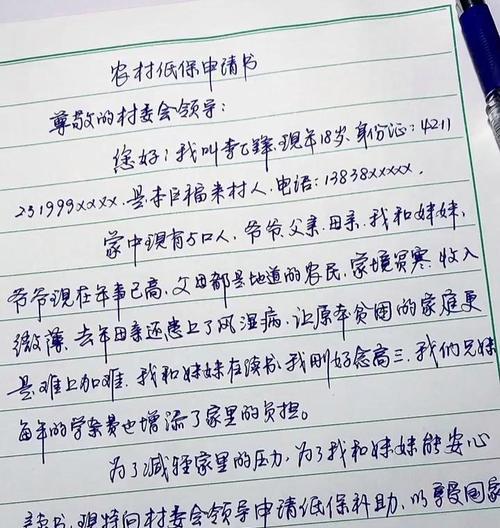 农村低保申请书
尊敬的村委会领导：
您好！我叫李乙锋，现年18岁，身份证：4211
231999xxxx，是本巨福来村人，电话：13838xxxxx，
家中现有5口人，爷爷、父亲、母亲、我和妹妹，
爷爷现在年事已高，父母都是地道的农民，家境贫寒，收入
微薄，去年母亲还患上了风湿病，让原本贫困的家庭更
是难上加难，我和妹妹在读书，我刚好念高三，我们兄妹
每年的学杂费也增添了家里的负担。
为了减轻家里的压力，为了我和妹妹能安心
读书，现特向村委会领导申请低保补助，以享受国家